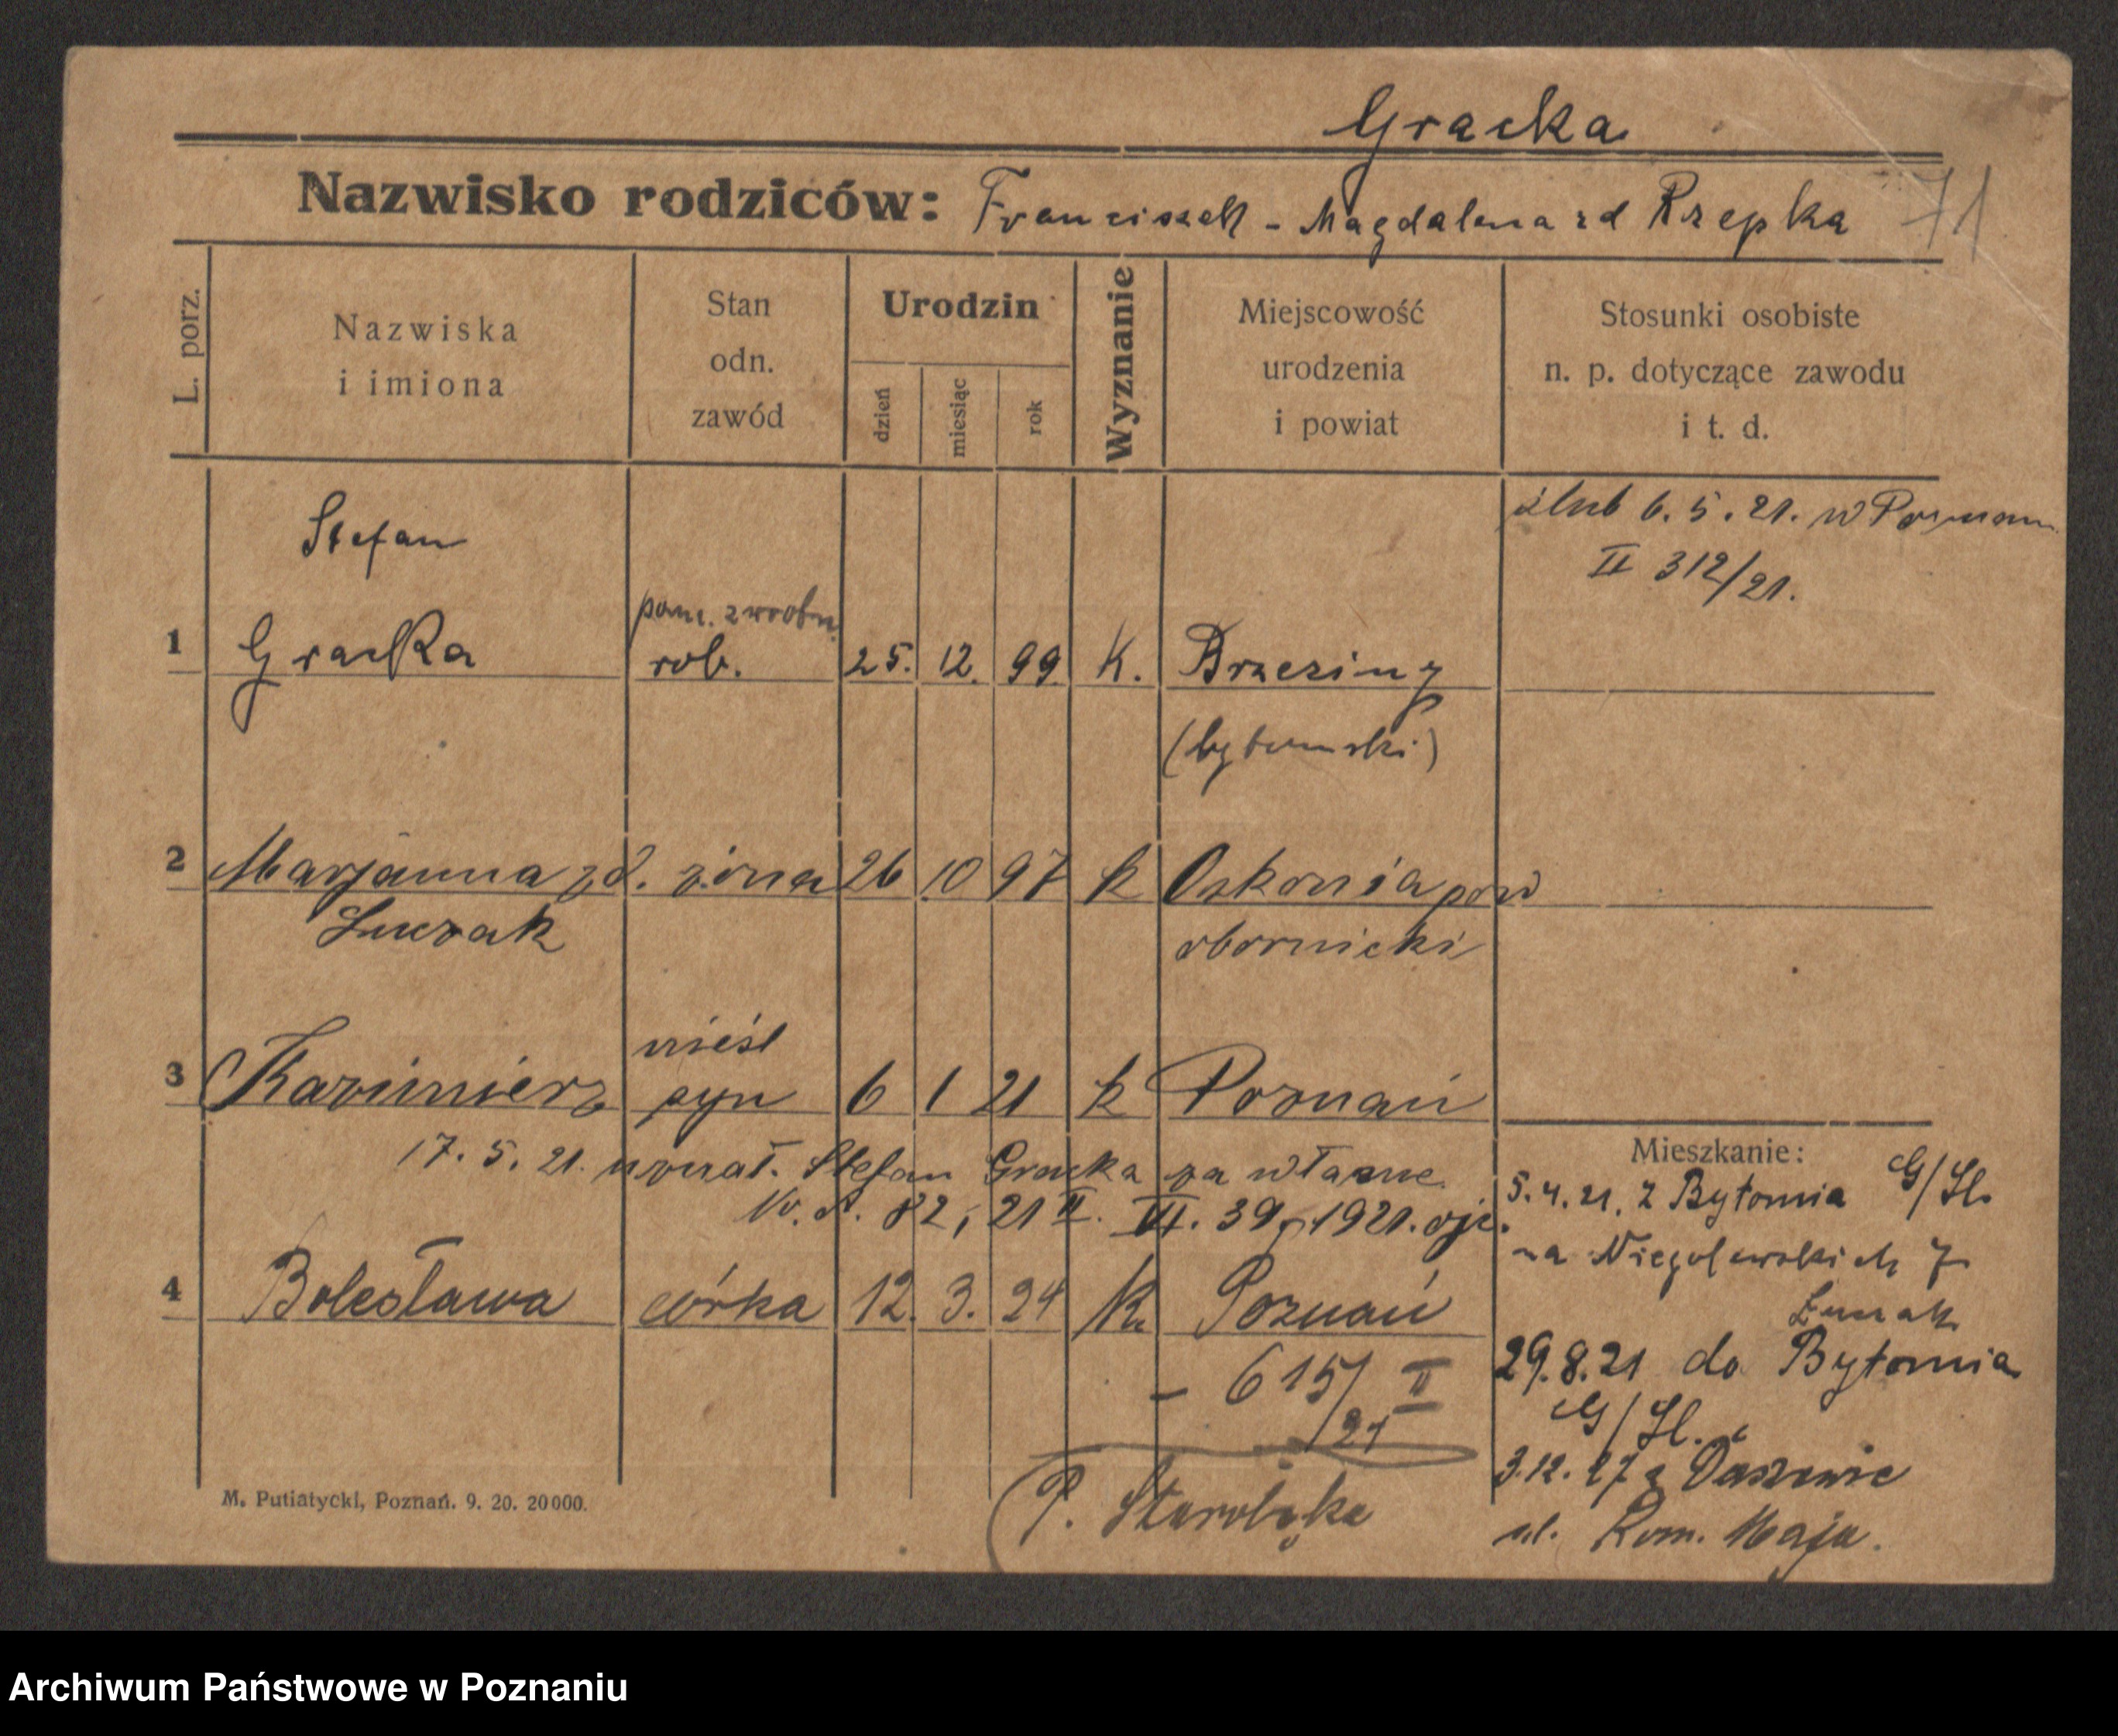 Gracka
Nazwisko rodziców: Franciszek - Magdalena zd Rzepka 71
L. porz.
Nazwiska
i imiona
Stan
odn.
zawód
Urodzin
dzień
miesiąc
rok
Wyznanie
Miejscowość
urodzenia
i powiat
Stosunki osobiste
n. p. dotyczące zawodu
i t. d.
ślub 6. 5. 21. w Poznaniu
II 312/21.
Stefan
pom.
1 Gracka rob. 25. 12. 99 K. Brzeziny
(bytomski)
2 Marjanna zd. żona 26 10 97 k Ockonia pow
Luczak obornicki
nieśl
3 Kazimierz syn 6 1 21 k Poznań
17. 5. 21. uznał. Stefan Gracka za własne
82, 21 II. VI. 39, 1921.
4 Bolesława córka 12. 3. 24 K. Poznań
- 615/II
/21
P. Starołęka
Mieszkanie:
5. 4. 21. z Bytomia G/Sl.
na Niegolewskich 7
Łuczak
29. 8. 21 do Bytomia
G/Sl.
3. 12. 27 z Daszewic
ul. Rom. Maja.
M. Putiatycki, Poznań. 9. 20. 20000.
Archiwum Państwowe w Poznaniu